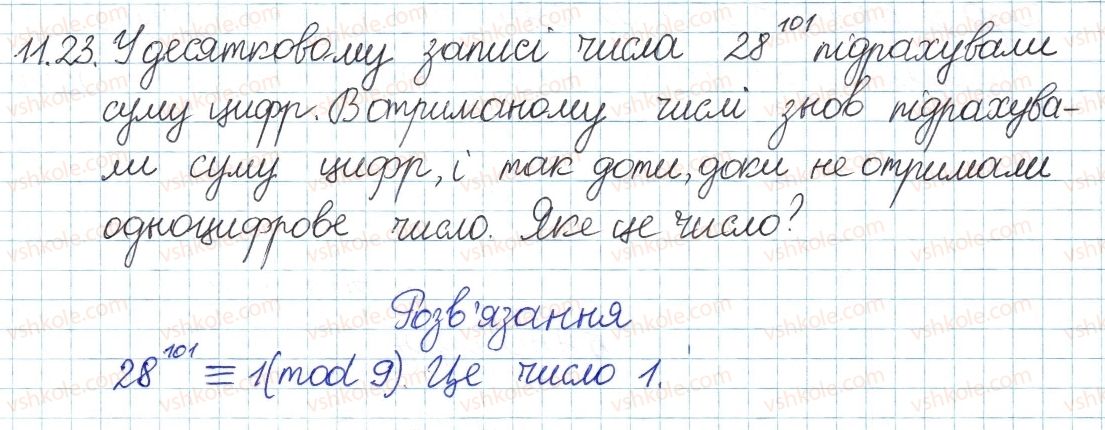 11.23. У десятковому записі числа 28^101 підрахували
суму цифр. В отриманому числі знов підрахува-
ли суму цифр, і так доти, доки не отримали
одноцифрове число. Яке це число?
Розв'язання
28^101 ≡ 1 (mod 9). Це число 1.